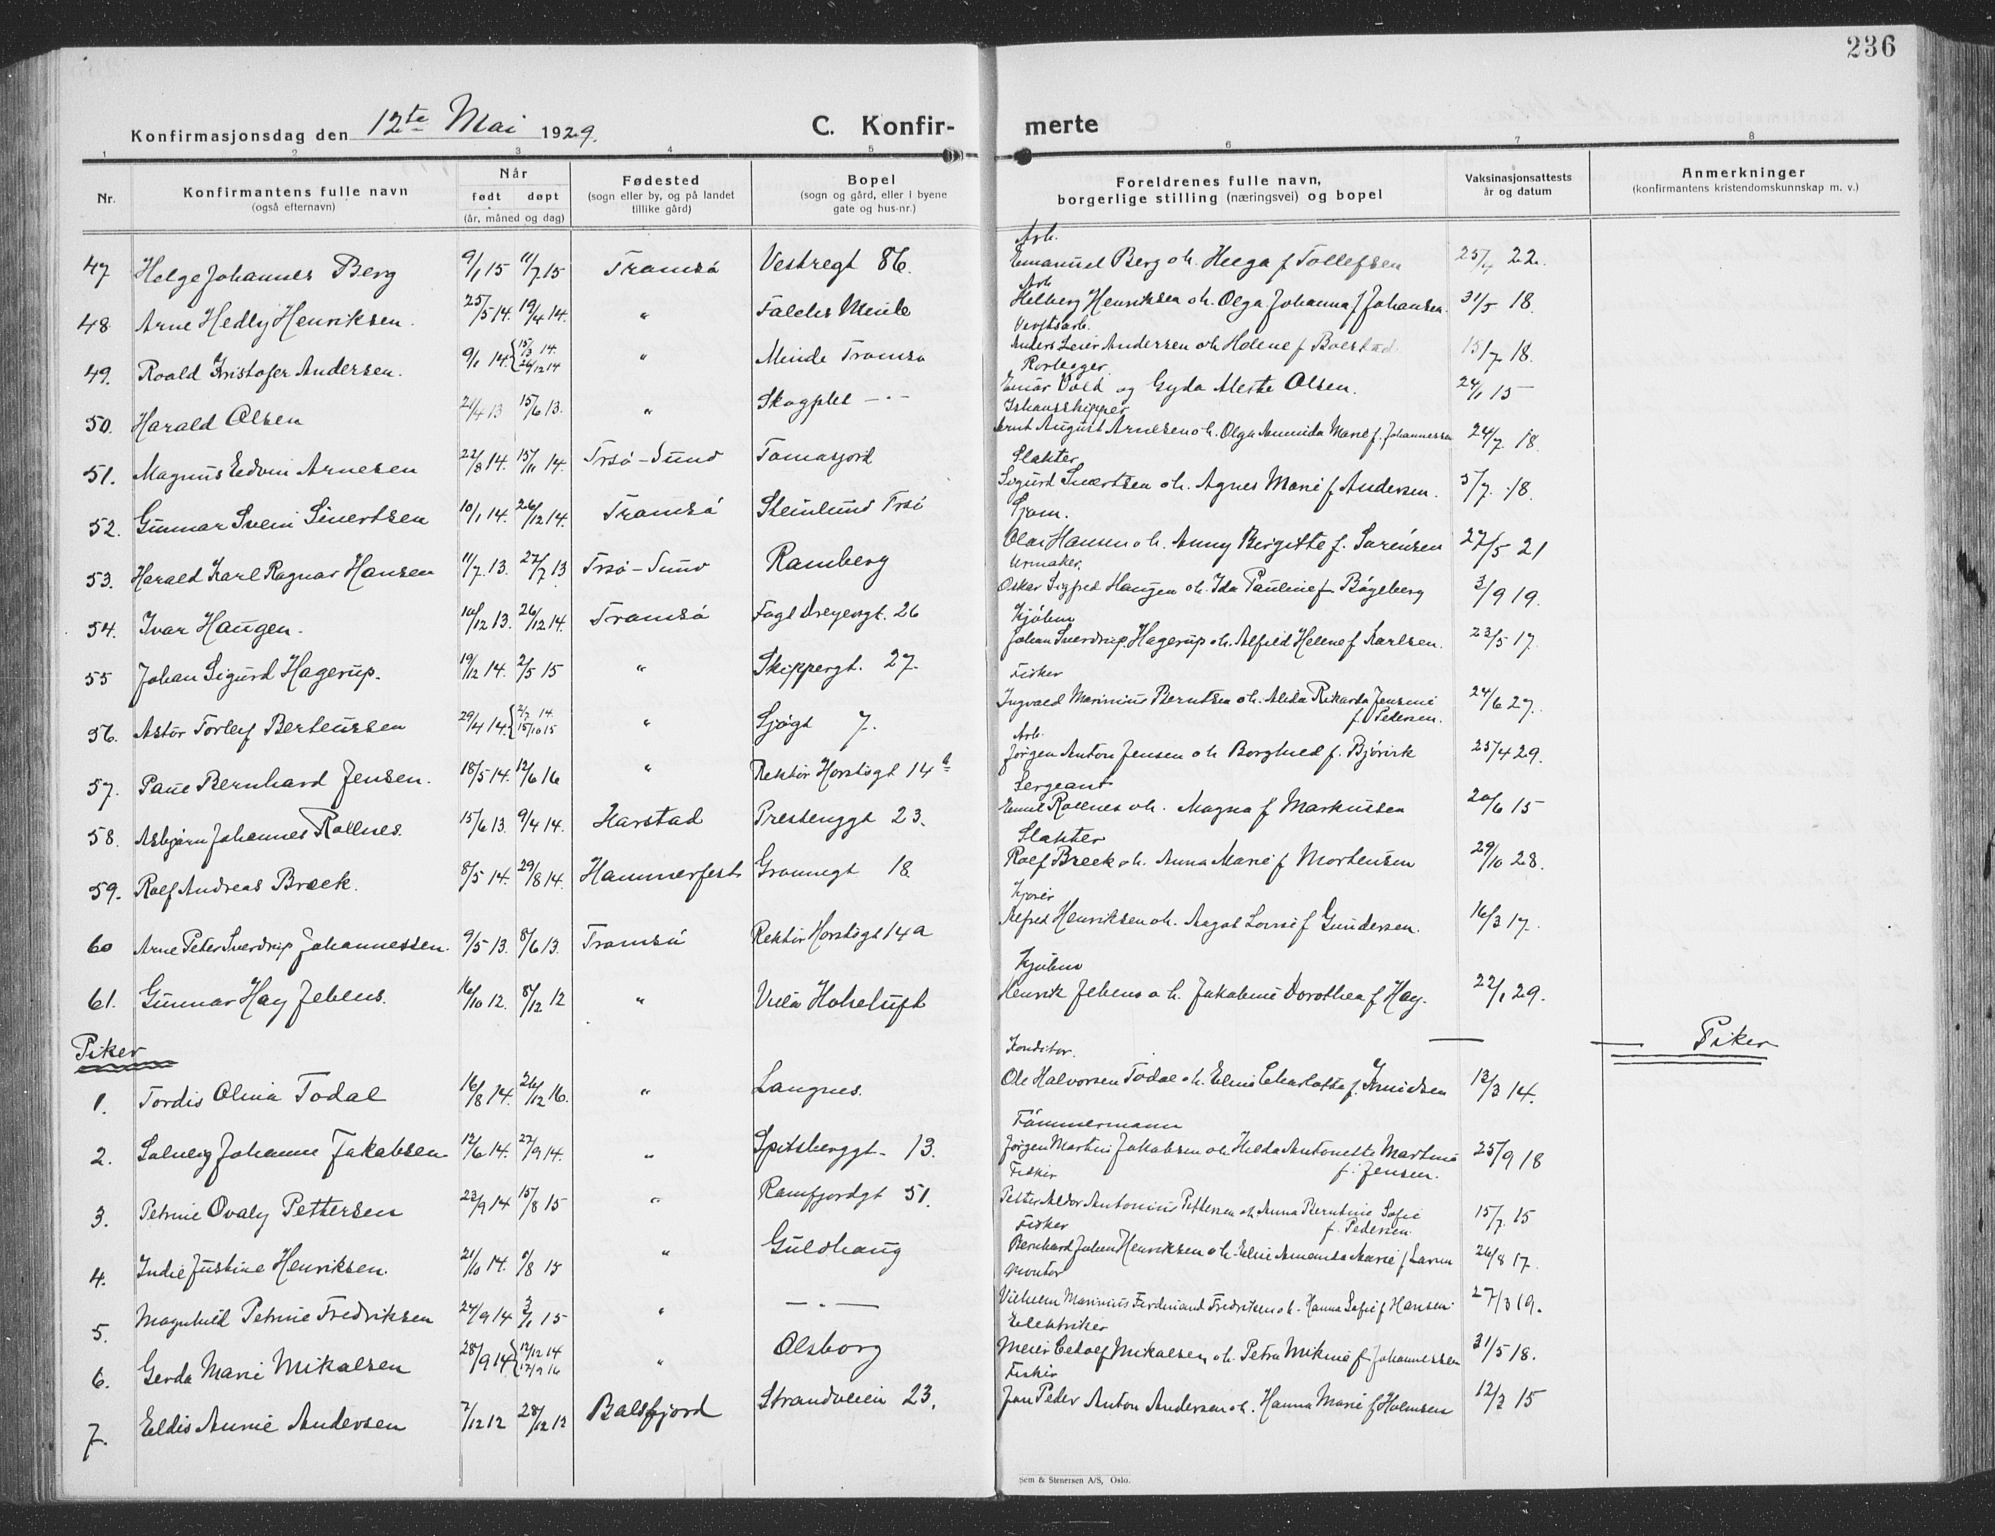 236
Konfirmasjonsdag den 12te Mai 1929.
C. Konfir-
merte
1 2 3 4 5 6 7 8
Nr.
Konfirmantens fulle navn
(også efternavn)
Når
født døpt
(år, måned og dag)
Fødested
(sogn eller by, og på landet
tillike gård)
Bopel
(sogn og gård, eller i byene
gate og hus-nr.)
Foreldrenes fulle navn,
borgerlige stilling (næringsvei) og bopel
Vaksinasjonsattests
år og datum
Anmerkninger
(konfirmantens kristendomskunnskap m. v.)
Arb.
47 Helge Johannes Berg 9/1 15 11/7 15 Tromsø Vestregt 86. Emanuel Berg o h. Helga f Tollefsen 25/4 22.
Arb
48 Arne Hedly Henriksen. 25/5 14. 19/4 14. " Helberg Henriksen o h. Olga Johanna f Johansen. 31/5 18.
Verftsarb.
49. Roald Kristofer Andersen. 9/1 14 { 15/3 14. 26/12 14 " Minde Tromsø Andersen o h Helene f 15/7 18.
Rørlegger.
50. Harald Olsen 21/4 13 15/6 13. " Skogplst -"- Einar Vold og Gyda Merte Olsen. 24/1 15
Ishavsskipper
51. Magnus Edvin Arnesen 22/8 14. 15/11 14. Trsø-Sund Tomasjord Arnt August Arnesen o h. Olga Marie f. Johannessen 24/7 18
Slakter
52. Gunnar Svein Sivertsen 10/1 14. 26/12 14. Tromsø Steinlund Trsø Sigurd Sivertsen o h. Agnes Marie f Andersen. 5/7. 18.
Sjøm.
53. Harald Karl Ragnar Hansen 11/7. 13. 27/7 13 Trsø-Sund Ramberg Olav Hansen o h. Anny Bergitte f. Sørensen 27/5 21
Urmaker.
54. Ivar Haugen. 10/12 13. 26/12 14. Tromsø Fogd Dreyersgt. 26 Oskar Sigfred Haugen o h. Ida Pauline f Bøgeberg 3/9 19.
Kjøbm
55 Johan Sigurd Hagerup. 19/12 14. 2/5 15 " Skippergt. 27. Johan Sverdrup Hagerup o h. Alfild Helene f Karlsen. 23/5 17.
Fisker
56. Astor Torleif Berteussen 29/4 14. { 2/7 14. 15/10 15 " Sjøgt 7. Ingvald Marinius Berntsen o h. Alida Rikarda Jensine
f. Pedersen. 24/6 27.
Arb.
57. Paul Bernhard Jensen. 18/5 14. 12/6 16 " Rektor Horstsgt 14 b Jørgen Anton Jensen o h Borghild f. Bjørvik 25/4 29.
Sergeant
58. Asbjørn Johannes Rollnes. 15/6 13. 9/4 14. Harstad Prestenggt 23. Emil Rollnes o h. Magna f Markussen 20/6 15
Slakter
59. Rolf Andreas Breck. 8/5 14. 29/8 14. Hammerfest Grønnegt 18 Rolf Breck o h. Anna Marie f Mortensen 29/10 28.
60 Arne Peter Sverdrup Johannessen. 9/5 13. 8/6 13. Tromsø Rektor Horstsgt 14a Alfred Henriksen o h. Aagot Lovise f Gundersen. 16/3 17.
Kjøbm
61. Gunnar Hay Jebens. 16/10 12. 8/12 12 " Villa Hoheluft Henrik Jebens o h. Jakobine Dorothea f Hay. 22/1 29.
Piker — — Piker
Konditor.
1. Tordis Olina Todal 16/8 14. 26/12 16. " Langnes. Ole Halvorsen Todal o h. Charlotte f. Knudsen 13/3 14.
Tømmermann
2. Solveig Johanne Jakobsen 12/6 14. 27/9 14. " Spitsberggt. 13. Jørgen Martin Jakobsen o h Hilda Antonette Martine
f. Jensen. 25/9 18
Fisker
3. Petrine Ovaly Pettersen 23/9 14 15/8 15 " Ramfjordgt 51. Petter Antonius Pettersen o h Anna Berntine Sofie
f. Pedersen. 15/7. 15
Fisker
4. Indie Justine Henriksen. 21/10 14. 1/8 15 " Guldhaug Bernhard Johan Henriksen o h. Amanda Marie f Larsen 26/8 17.
Montør
5. Magnhild Petrine Fredriksen 24/9 14 3/1 15 " —"— Vilhelm Marinius Ferdinand Fredriksen o h. Hanna Sofie f Hansen. 27/3 19.
Elektriker
6. Gerda Marie Mikalsen 28/9 14 { 12/12 14 17/9 16 " Olsborg Meier Mikalsen o h. Petra Mikine f Johannessen 31/5 18.
Fisker
7. Eldis Annie Andersen 7/12 12 28/12 12 Balsfjord Strandveien 23. Jon Peder Anton Andersen o h. Hanna Marie f Holmsen 12/3 15
Sem & Stenersen A/S, Oslo.